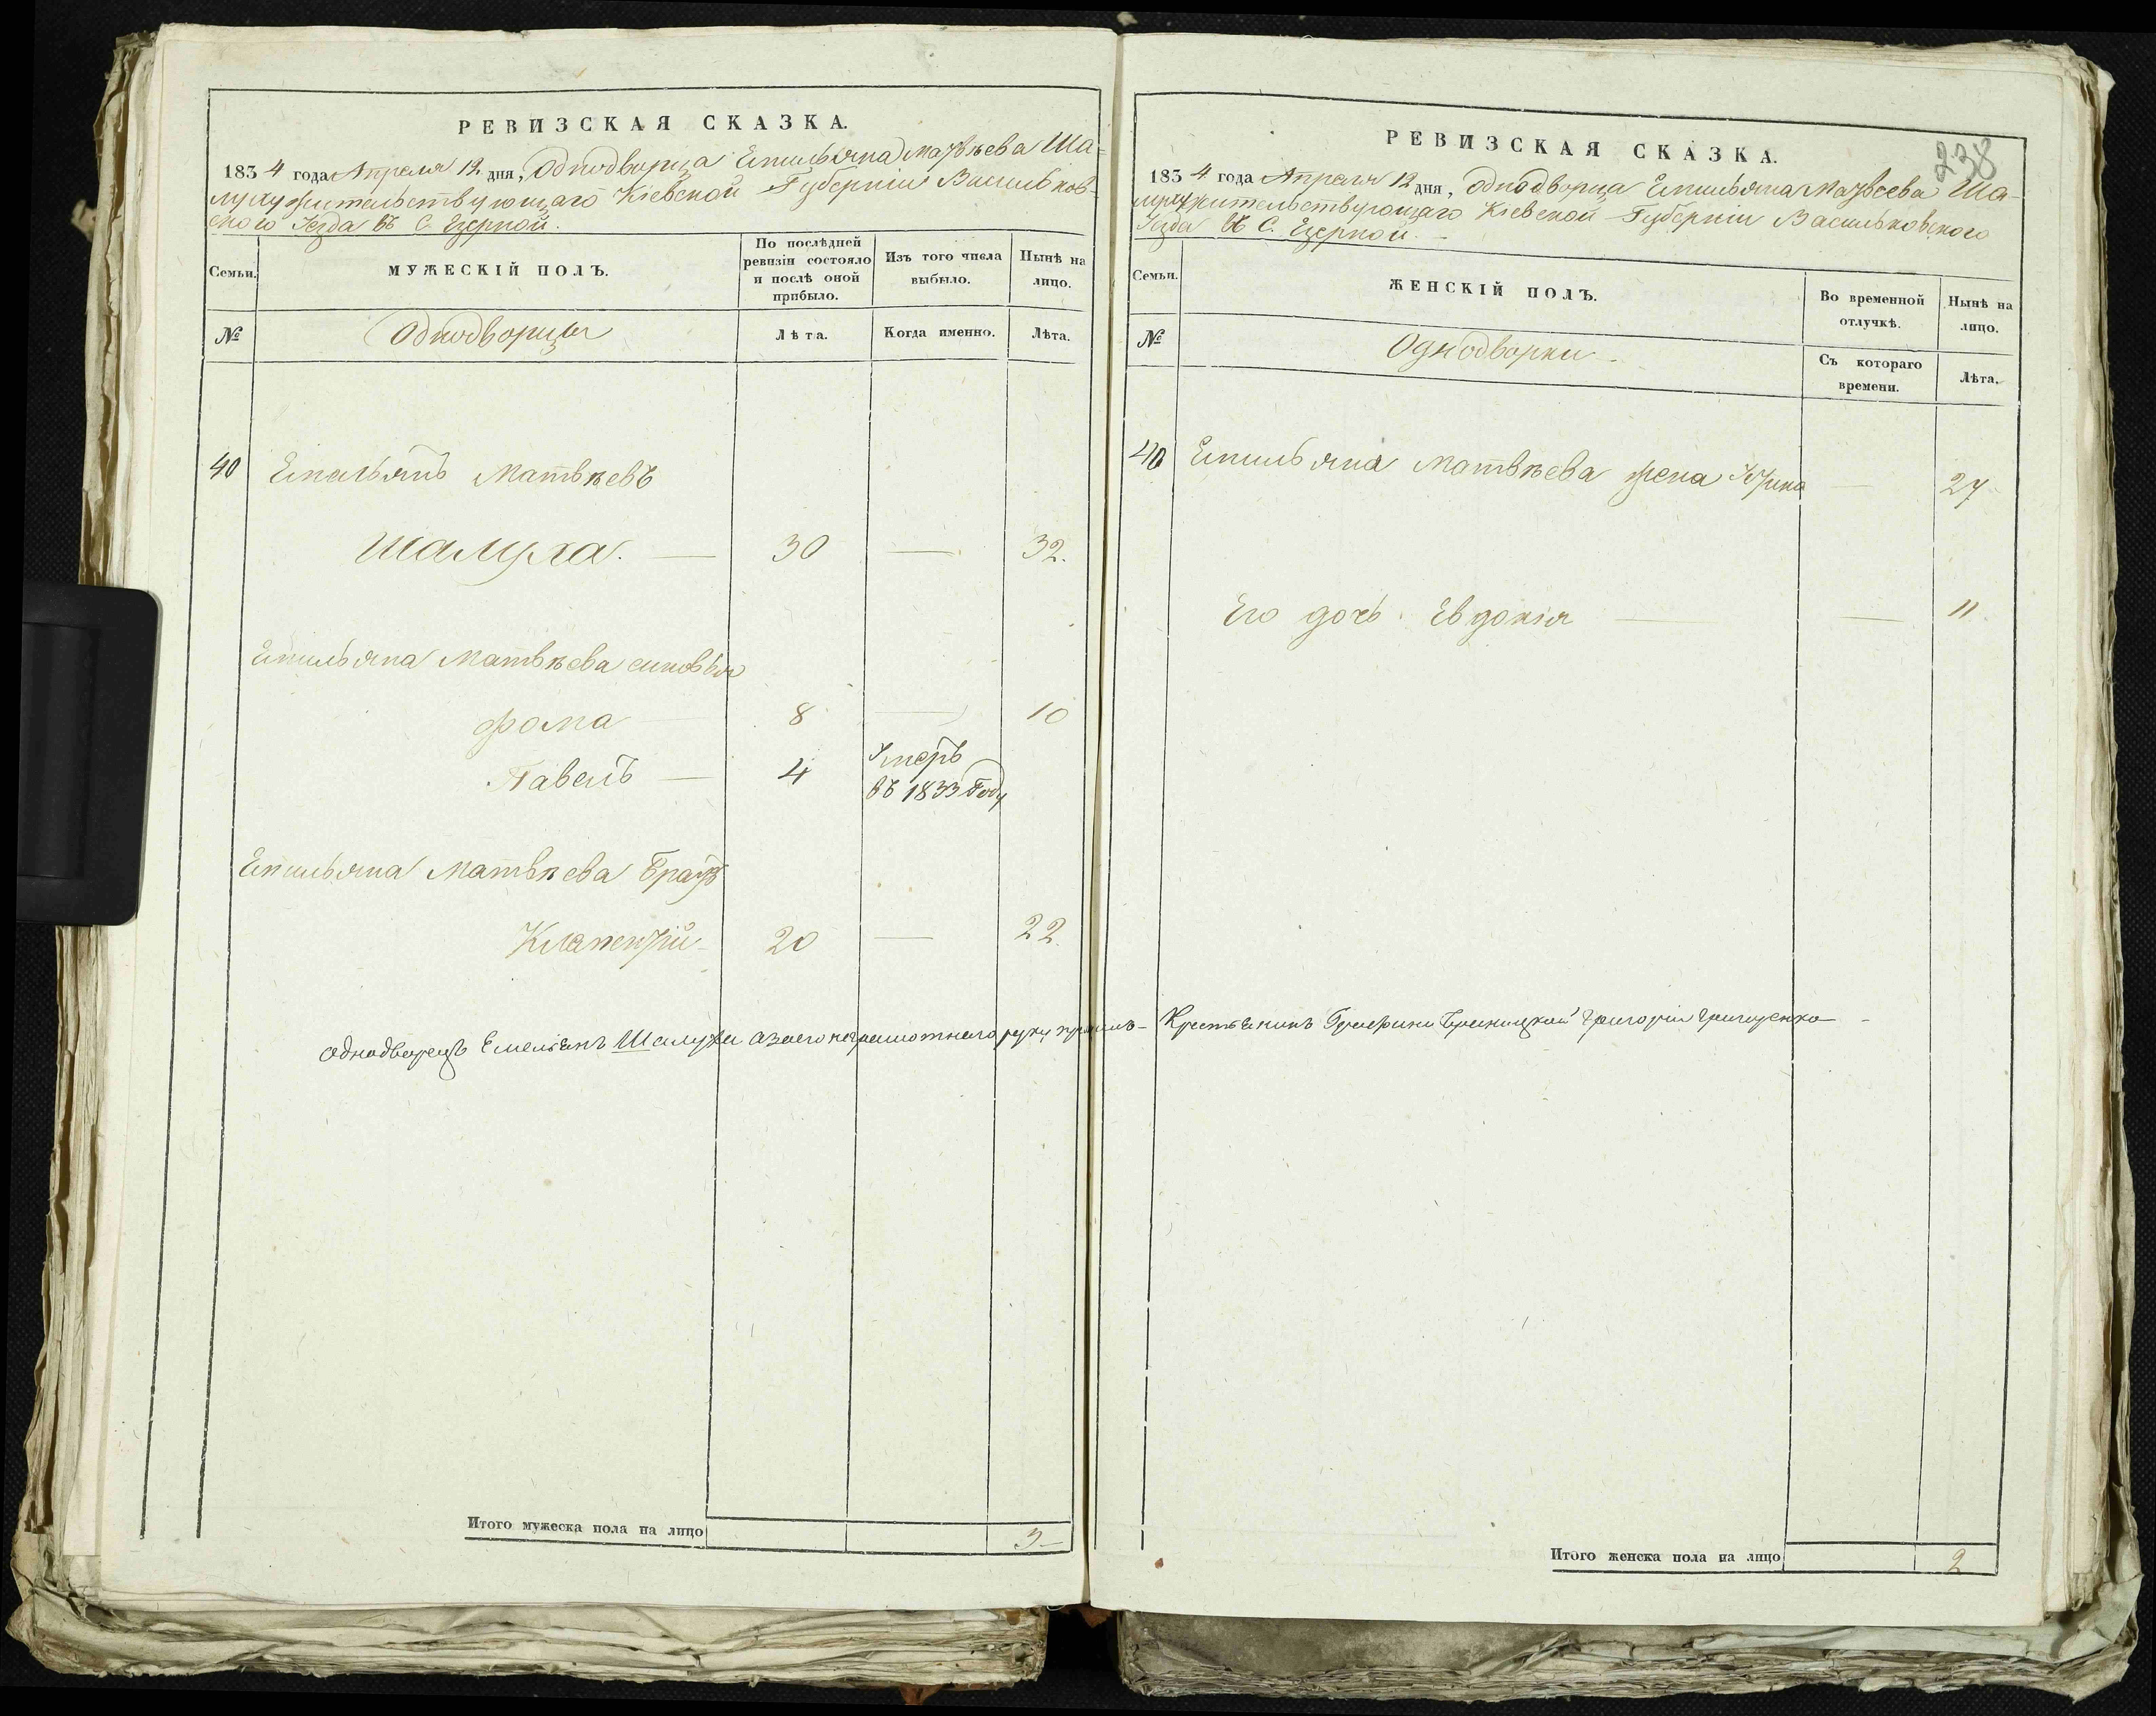 РЕВИЗСКАЯ СКАЗКА.
1834 года Апреля 12 дня, Однодворца Емильяна Матвѣева Ша-
лухи жительствующаго Кіевской Губерніи Васильков-
ского Уезда въ С. Езерной.
Семьи.
МУЖЕСКІЙ ПОЛЪ.
По послѣдней ревизіи состояло и послѣ оной прибыло.
Изъ того числа выбыло.
Нынѣ на лицо.
№
Однодворцы
Лѣта.
Когда именно.
Лѣта.
40 Емельянъ Матвѣевъ
Шалуха. — 30 — 32.
Емильяна Матвѣева сыновья
Фома — 8 — 10
Павелъ — 4 Умеръ
въ 1833 Году
Емильяна Матвѣева братъ
20 — 22.
Однодворецъ Емельянъ Шалуха а за его неграмотнаго руку
Итого мужеска пола на лицо 3 —
238
РЕВИЗСКАЯ СКАЗКА.
1834 года Апреля 12 дня, Однодворца Емильяна Матвеева Ша-
лухи жительствующаго Кіевской Губерніи Васильковского
Уезда въ С. Езерной. -
Семьи.
ЖЕНСКІЙ ПОЛЪ.
Во временной отлучкѣ.
Нынѣ на лицо.
№
Однодворки -
Съ котораго времени.
Лѣта.
40 Емильяна Матвѣева жена Ирина — 27
Его дочь Евдокія — — 11
Крестьянинъ Графини Браницкой Григорій Грищенко —
Итого женска пола на лицо 2